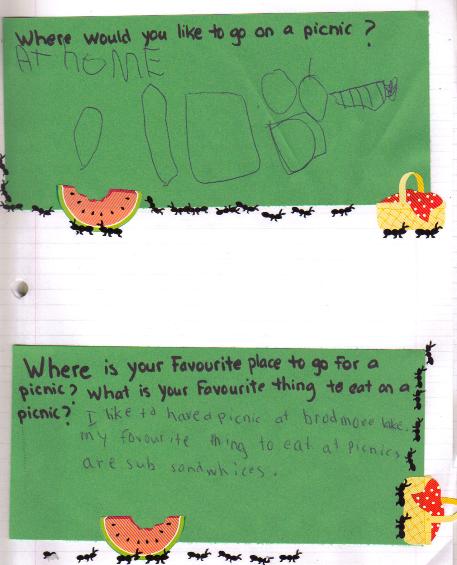 Where would you like to go on a picnic ?
AT hOME
Where is your Favourite place to go For a
picnic? What is your Favourite thing to eat on a
picnic?
I like to have a picnic at brodmore lake.
my favourite thing to eat at picnics
are sub sandwhices.